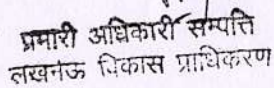 प्रभारी अधिकारी सम्पत्ति
लखनऊ विकास प्राधिकरण